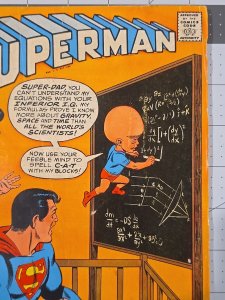 APPROVED
BY THE
COMICS
CODE
AUTHORITY
SUPERMAN
SUPER-DAD, YOU
CAN'T UNDERSTAND MY
EQUATIONS WITH YOUR
INFERIOR I.Q. MY
FORMULAS PROVE I KNOW
MORE ABOUT GRAVITY,
SPACE AND TIME THAN
ALL THE WORLD'S
SCIENTISTS!
NOW USE YOUR
FEEBLE MIND TO
SPELL C-A-T
WITH MY BLOCKS!